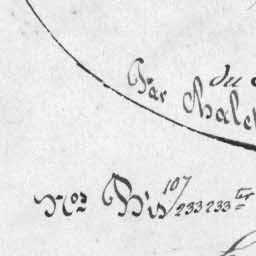 du
Par Chale
Nos Bis 107/233 233 ter